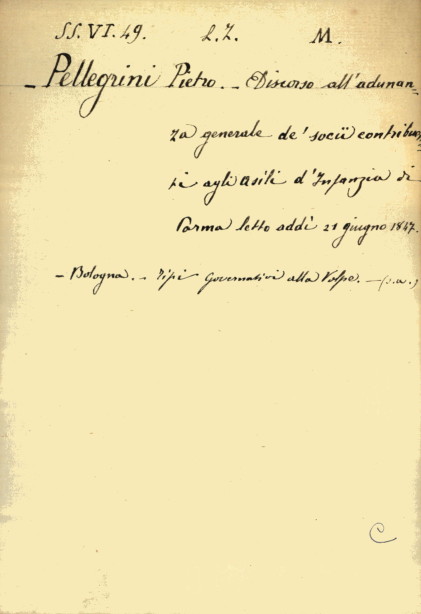 SS.VI.49. L.Z. M.
- Pellegrini Pietro. - Discorso all'adunan=
za generale de' socii contribuen=
ti agli Asili d'Infanzia di
Parma letto addì 21 giugno 1847.
- Bologna. - Tipi Governativi alla Volpe. - (s.a.)
C